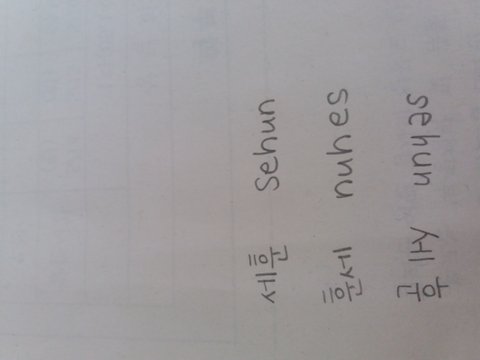 세훈 Sehun
훈세 nuhes
sehun 세훈